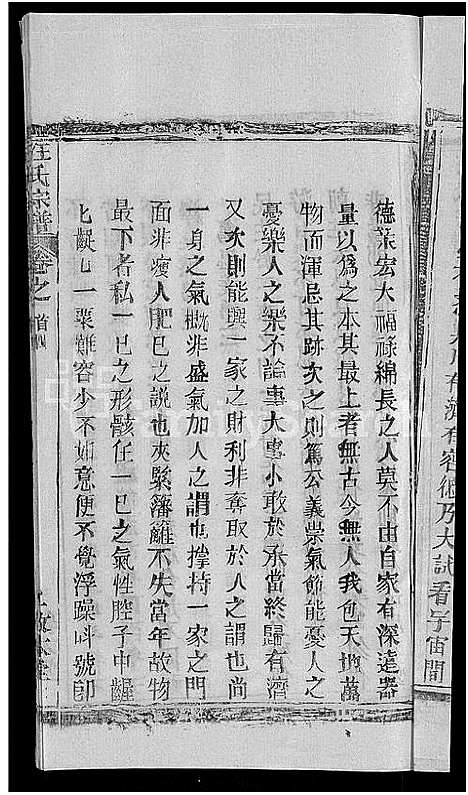 有濟有容德乃大試看宇宙間
德業宏大福祿綿長之人莫不由自家有深遠器
量以爲之本其最上者無古今無人我包天地萬
物而渾忌其跡次之則篤公義崇氣節能憂人之
憂樂人之樂不論事大事小敢於承當終歸有濟
又次則能興一家之財利非奪取於人之謂也尚
一身之氣概非盛氣加人之謂也撑持一家之門
面非瘦人肥已之說也夾緊籓籬不失當年故物
最下者私一已之形骸任一已之氣性腔子中齷
七齪七一粟難容少不如意便不覺浮躁呌號卽
汪氏宗譜
卷之首